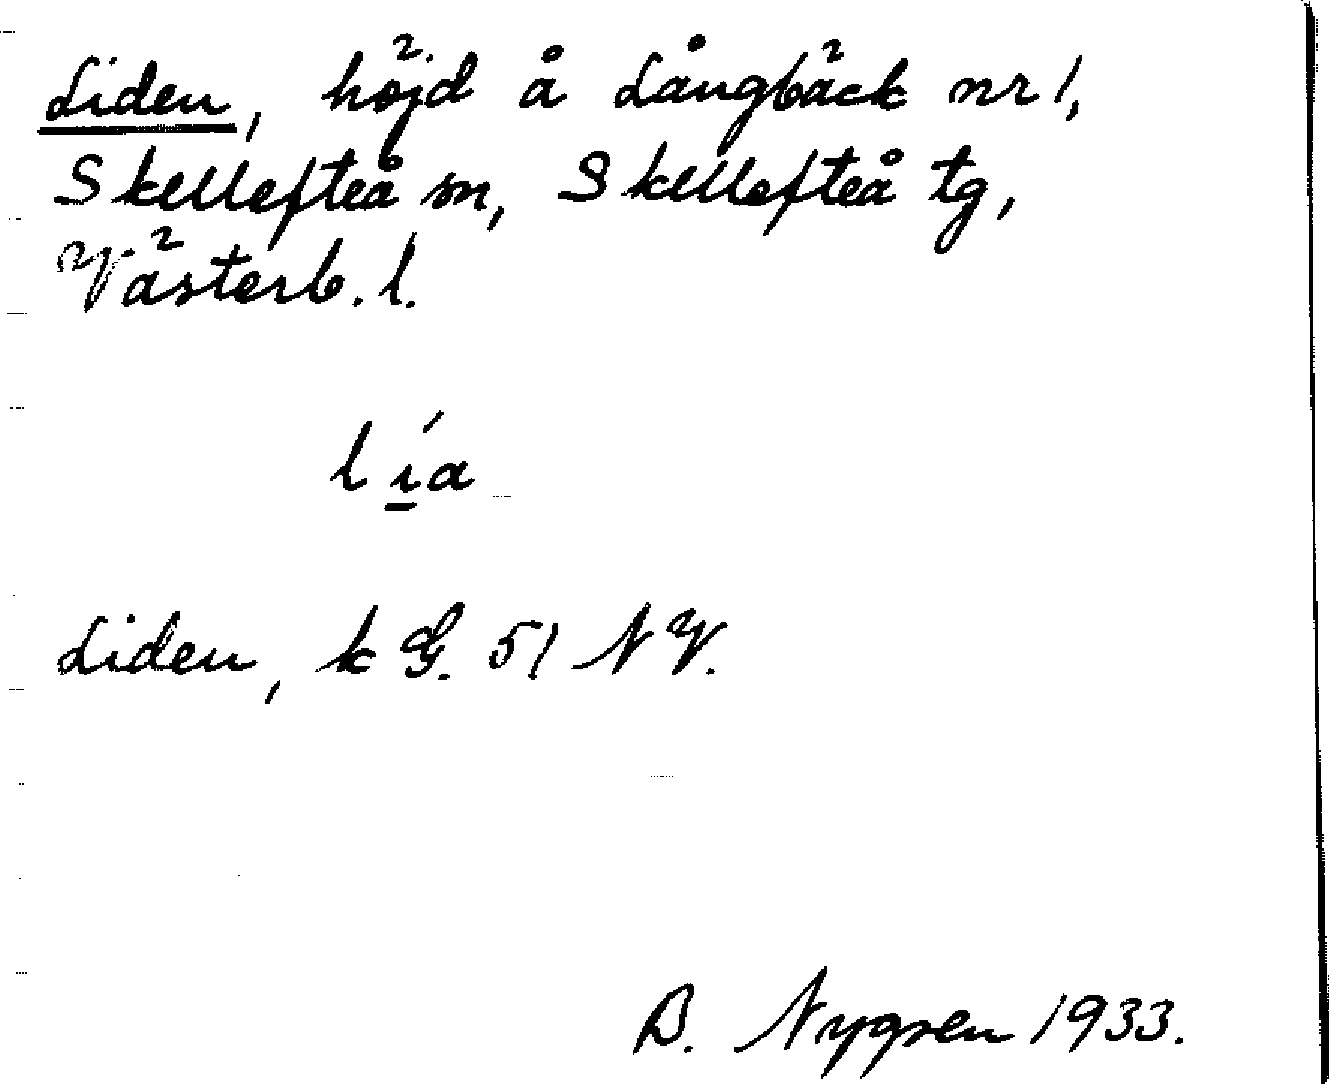 Liden, höjd å Långbäck nr 1,
Skellefteå sn, Skellefteå tg,
Västerb. l.
lía
Liden, k G. 51 NV.
B. Nygren 1933.